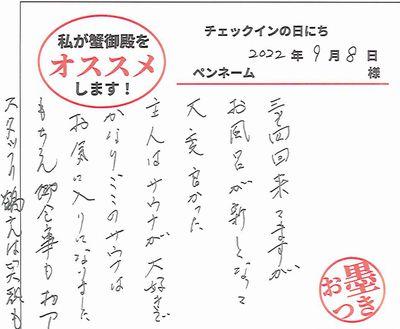 私が蟹御殿を
オススメ
します！
チェックインの日にち
2022年9月8日
ペンネーム 様
三、四回来てますが
お風呂が新しくなって
大変良かった
主人はサウナが大好きで
かなりここのサウナは
お気に入りになりました
もちろん御食事も
スタッフ
お墨つき